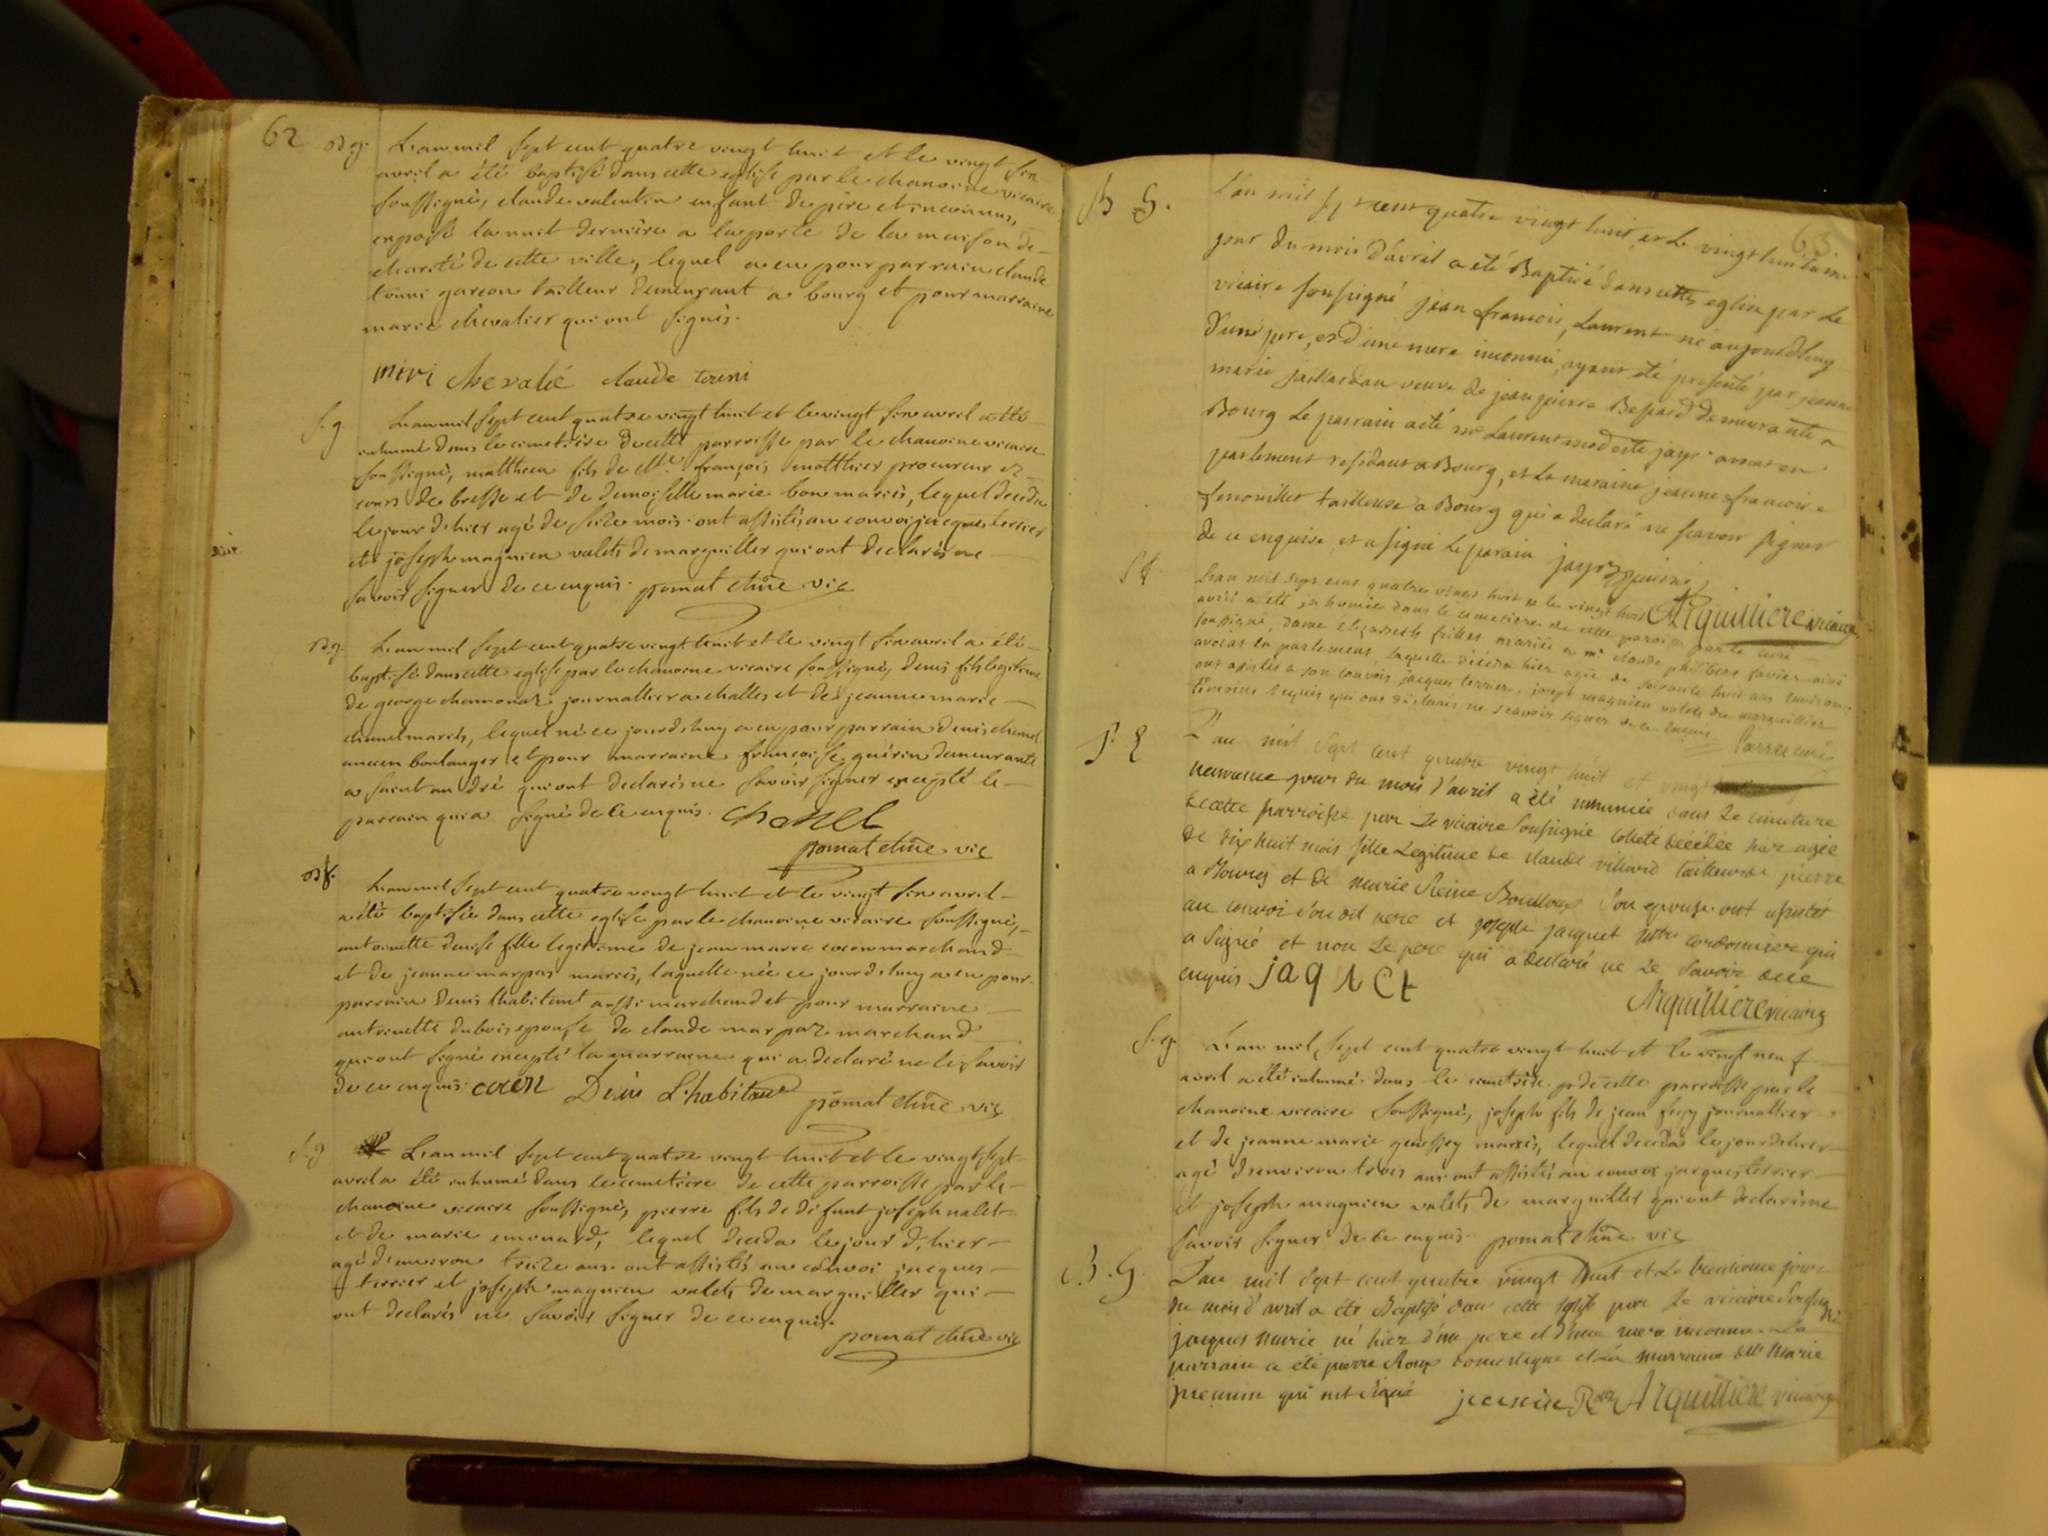 62
B g.
L'an mil sept cent quatre vingt huit et le vingt six
avril a été baptisé dans cette eglise par le chanoine vicaire
soussigné, claude valentin enfant de père et inconnus,
exposé la nuit derniere a la porte de la maison de
charité de cette ville, lequel a eu pour parrain claude
garcon tailleur demeurant a bourg et pour marraine
marie chevalier qui ont signés.
miri chevalié claude
S. g
L'an mil sept cent quatre vingt huit et le vingt six avril a été
inhumé dans le cimetière de cette parroisse par le chanoine vicaire
soussigné, matthieu fils de Me. françois matthier procureur ez
cours de bresse et de demoiselle marie bon mariés, lequel decéda
le jour d'hier agé de seize mois. ont assistés au convoi jacques terrier
et joseph magnien valets de marguillier qui ont declarés ne
savoir signer de ce enquis. pomat chne vic
B g.
L'an mil sept cent quatre vingt huit et le vingt six avril a été
baptisé dans cette eglise par le chanoine vicaire soussigné, denis fils legitime
de george chamonaz journallier a challes et de jeanne marie
chanel mariés, lequel né ce jourd'huy a eu pour parrain denis chanel
ancien boulanger et pour marraine françoise guérin demeurante
a saint andré qui ont declarés ne savoir signer excepté le
parrain qui a signé de ce enquis. chanel
pomat chne vic
B f.
L'an mil sept cent quatre vingt huit et le vingt six avril
a été baptisée dans cette eglise par le chanoine vicaire soussigné,
antoinette denise fille legitime de jean marie cocon marchand
et de jeanne marpaz mariés, laquelle née ce jourd'huy a eu pour
parrain denis l'habitant aussi marchand et pour marraine
antoinette dubois epouse de claude marpaz marchand
qui ont signé excepté la marraine qui a declaré ne le savoir
de ce enquis. Denis L'habitant pomat chne vic
S. g
L'an mil sept cent quatre vingt huit et le vingt sept
avril a été inhumé dans le cimetière de cette parroisse par le
chanoine vicaire soussigné, pierre fils de défunt joseph valet
et de marie emonard, lequel deceda le jour d'hier
agé d'environ treize ans. ont assistés au convoi jacques
terrier et joseph magnien valets de marguillier qui
ont declarés ne savoir signer de ce enquis.
pomat chne vic
63.
B G.
L'an mil sept cent quatre vingt huit et le vingt huitieme
jour du mois d'avril a été Baptisé dans cette eglise par le
vicaire soussigné jean francois Laurent né aujourd'huy
d'un pere, et d'une mere inconnu, ayant été presenté par jeanne
marie jaillardan veuve de jean pierre demeurante a
Bourg le parrain a été mr Laurent modeste avocat en
parlement residant a Bourg, et la maraine jeanne francoise
tailleuse a Bourg qui a declaré ne scavoir signer
de ce enquise, et a signé le parain
Arquilliere vicaire
S f.
L'an mil sept cens quatre vingt huit et le vingt huit
avril a été inhumée dans le cimetiere de cette paroisse par le curé
soussigné, dame Elizabeth mariée a mr claude philibert favier ainé
avocat en parlement, laquelle décéda hier agée de soixante huit ans environ;
ont assistés a son convoir jacques terrier, joseph magnien valets du marguillier
témoins requis qui ont déclarés ne scavoir signer de ce enquis.
curé
L'an mil sept cent quatre vingt huit et vingt
neuvieme jour du mois d'avril a été inhumée dans le cimetiere
de cette parroisse par le vicaire soussigné décédée hier agée
de dix huit mois fille Legitime de claude villard tailleur de pierre
a Bourg et de marie Reine son epouse. ont assisté
au convoi son dit pere et joseph jacquet cordonnier qui
a signé et non le pere qui a declaré ne le savoir de ce
enquis jaquet
Arquilliere vicaire
S. g.
L'an mil sept cent quatre vingt huit et le vingt neuf
avril a été inhumé dans le cimetière de cette parroisse par le
chanoine vicaire soussigné, joseph fils de jean journallier
et de jeanne marie mariés, lequel deceda le jour d'hier
agé d'environ trois ans ont assistés au convoi jacques terrier
et joseph magnien valets de marguillier qui ont declarés ne
savoir signer de ce enquis. pomat chne vic
B. G.
L'an mil sept cent quatre vingt huit et le trentieme jour
du mois d'avril a été Baptisé dans cette eglise par le vicaire soussigné
jacques marie né hier d'un pere et d'une mere inconnu. Le
parrain a été pierre Roux domestique et la marraine dlle Marie
qui ont signé Arquilliere vicaire